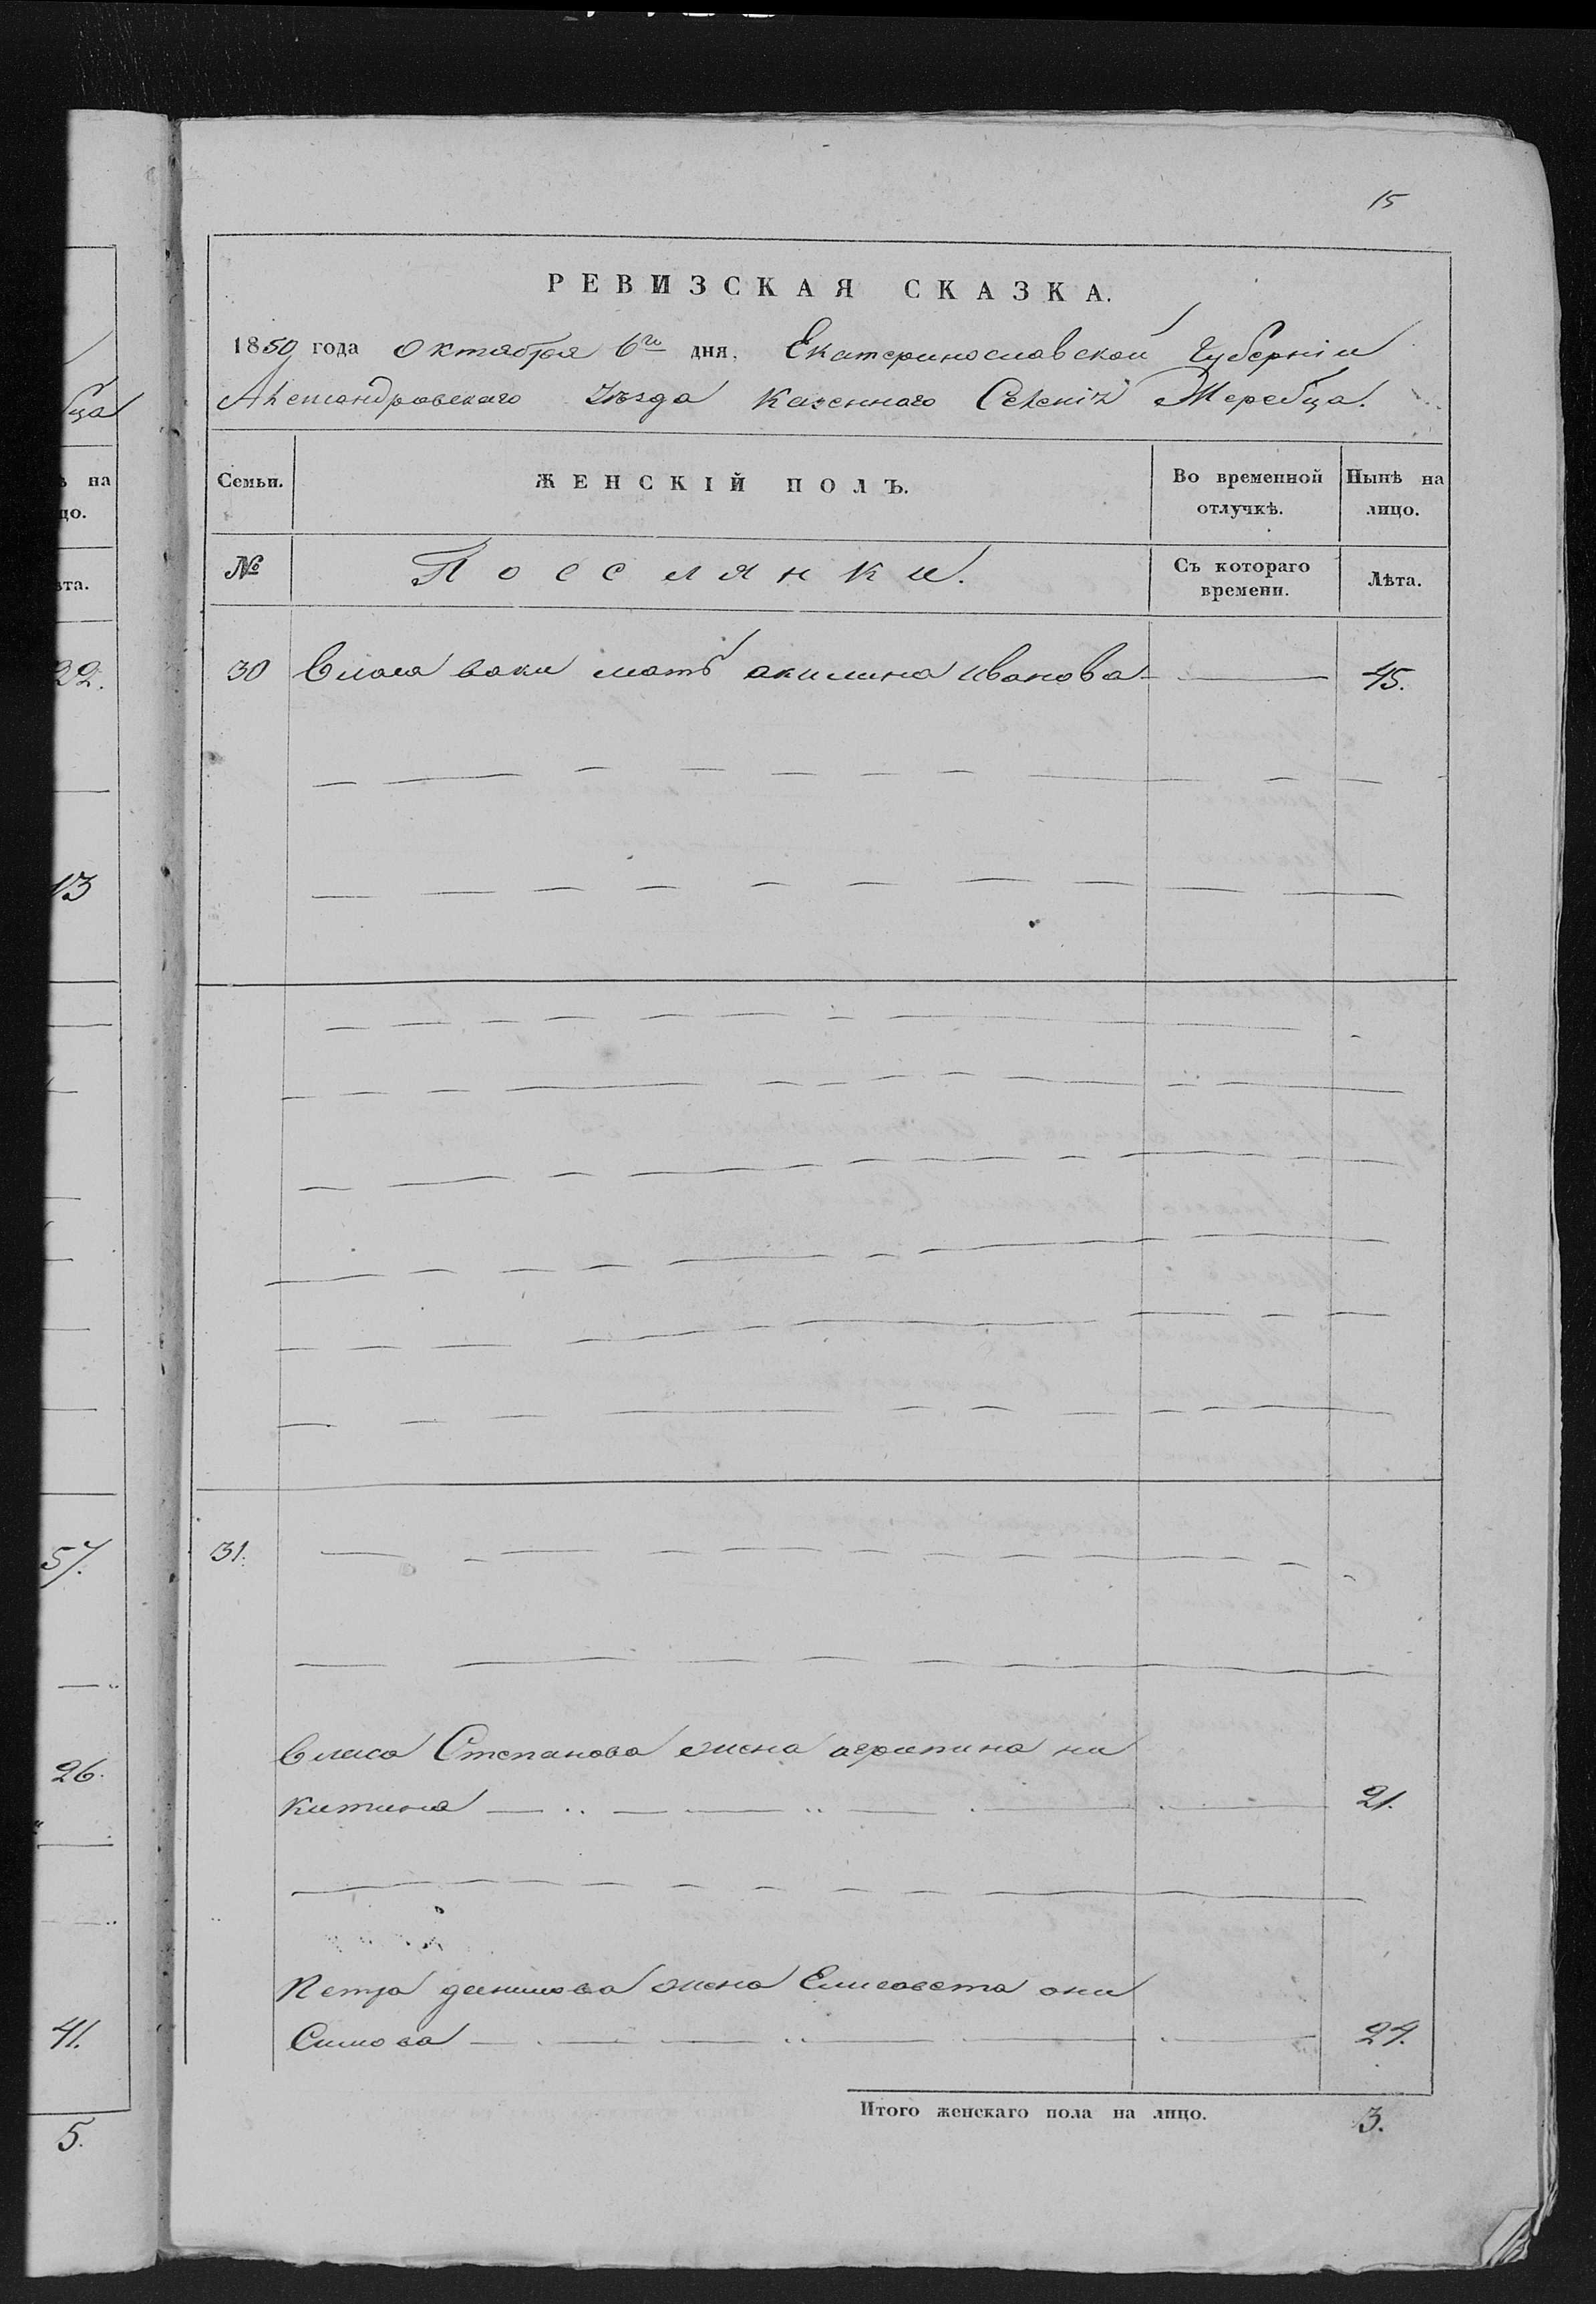 15
РЕВИЗСКАЯ СКАЗКА.
1850 года Октября 6го дня, Екатеринославской Губерніи
Александровскаго Уѣзда Казеннаго Селенія Жеребца.
Семьи.
ЖЕНСКІЙ ПОЛЪ.
Во временной отлучкѣ.
Нынѣ на лицо.
№
Поселянки.
Съ котораго времени.
Лѣта.
30 мать акилина иванова 45.
31.
Власа Степанова жена агрипина ни
китина 21.
Петра данилова жена Елисавета они
Симова 24.
Итого женскаго пола на лицо. 3.
бца
ѣ на
цо.
ѣта.
22.
13
57.
26.
41.
5.